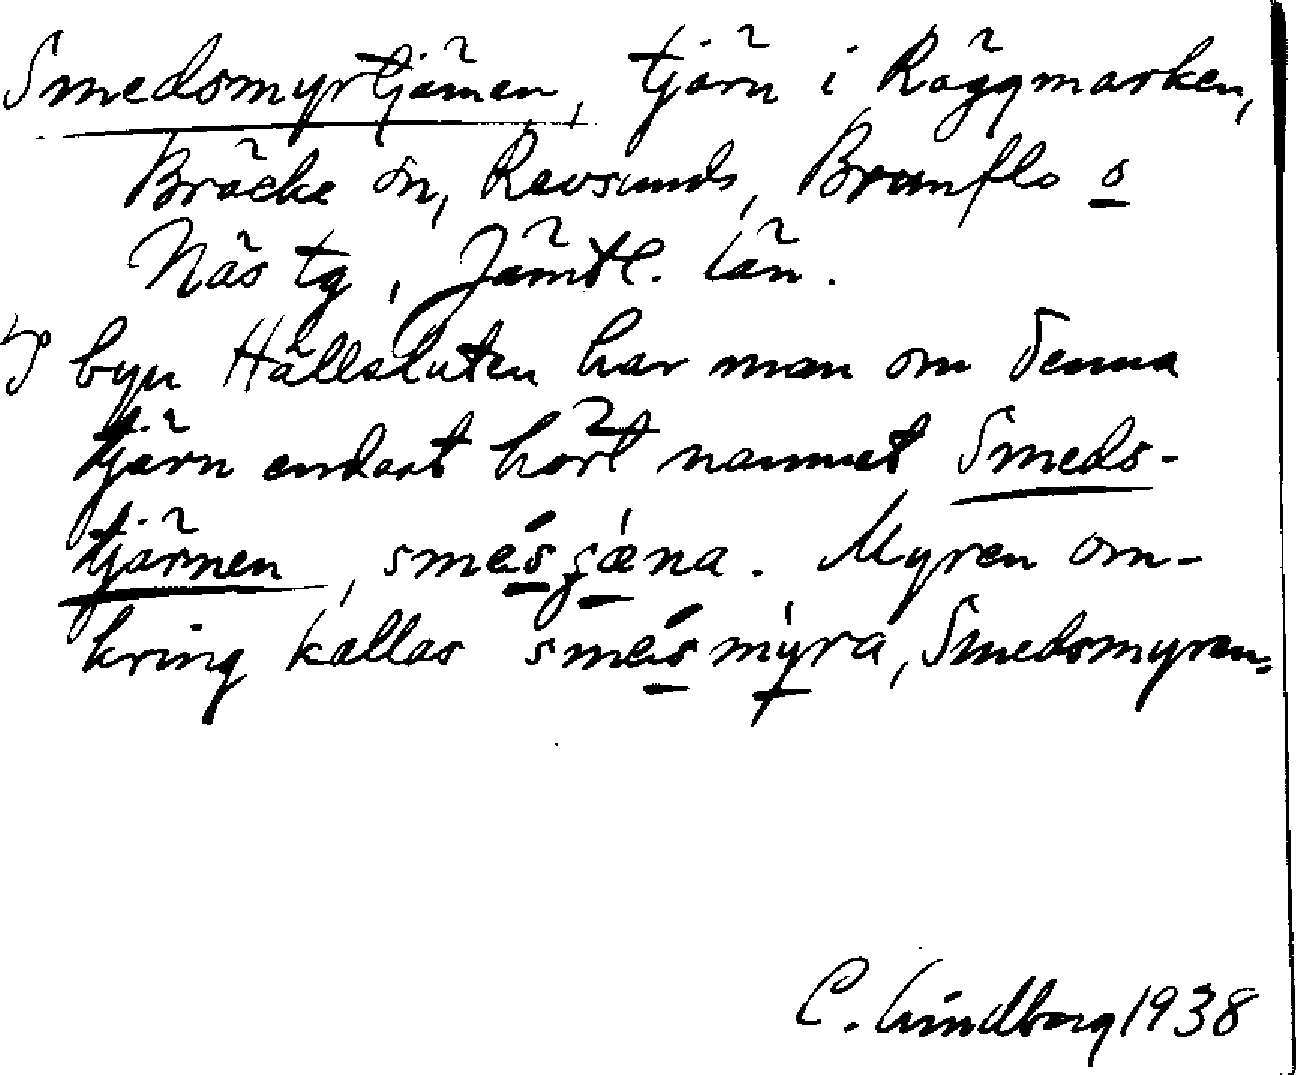 Smedsmyrtjärnen, tjärn i Räggmarken,
Bräcke sn, Revsunds, Brunflo o
Näs tg, Jämtl. län.
I byn Hällesluten har man om denna
tjärn endast hört namnet Smeds-
tjärnen, smésʒæ̀na. Myren om-
kring kallas smésmỳra, Smedsmyren.
C. Lindberg 1938